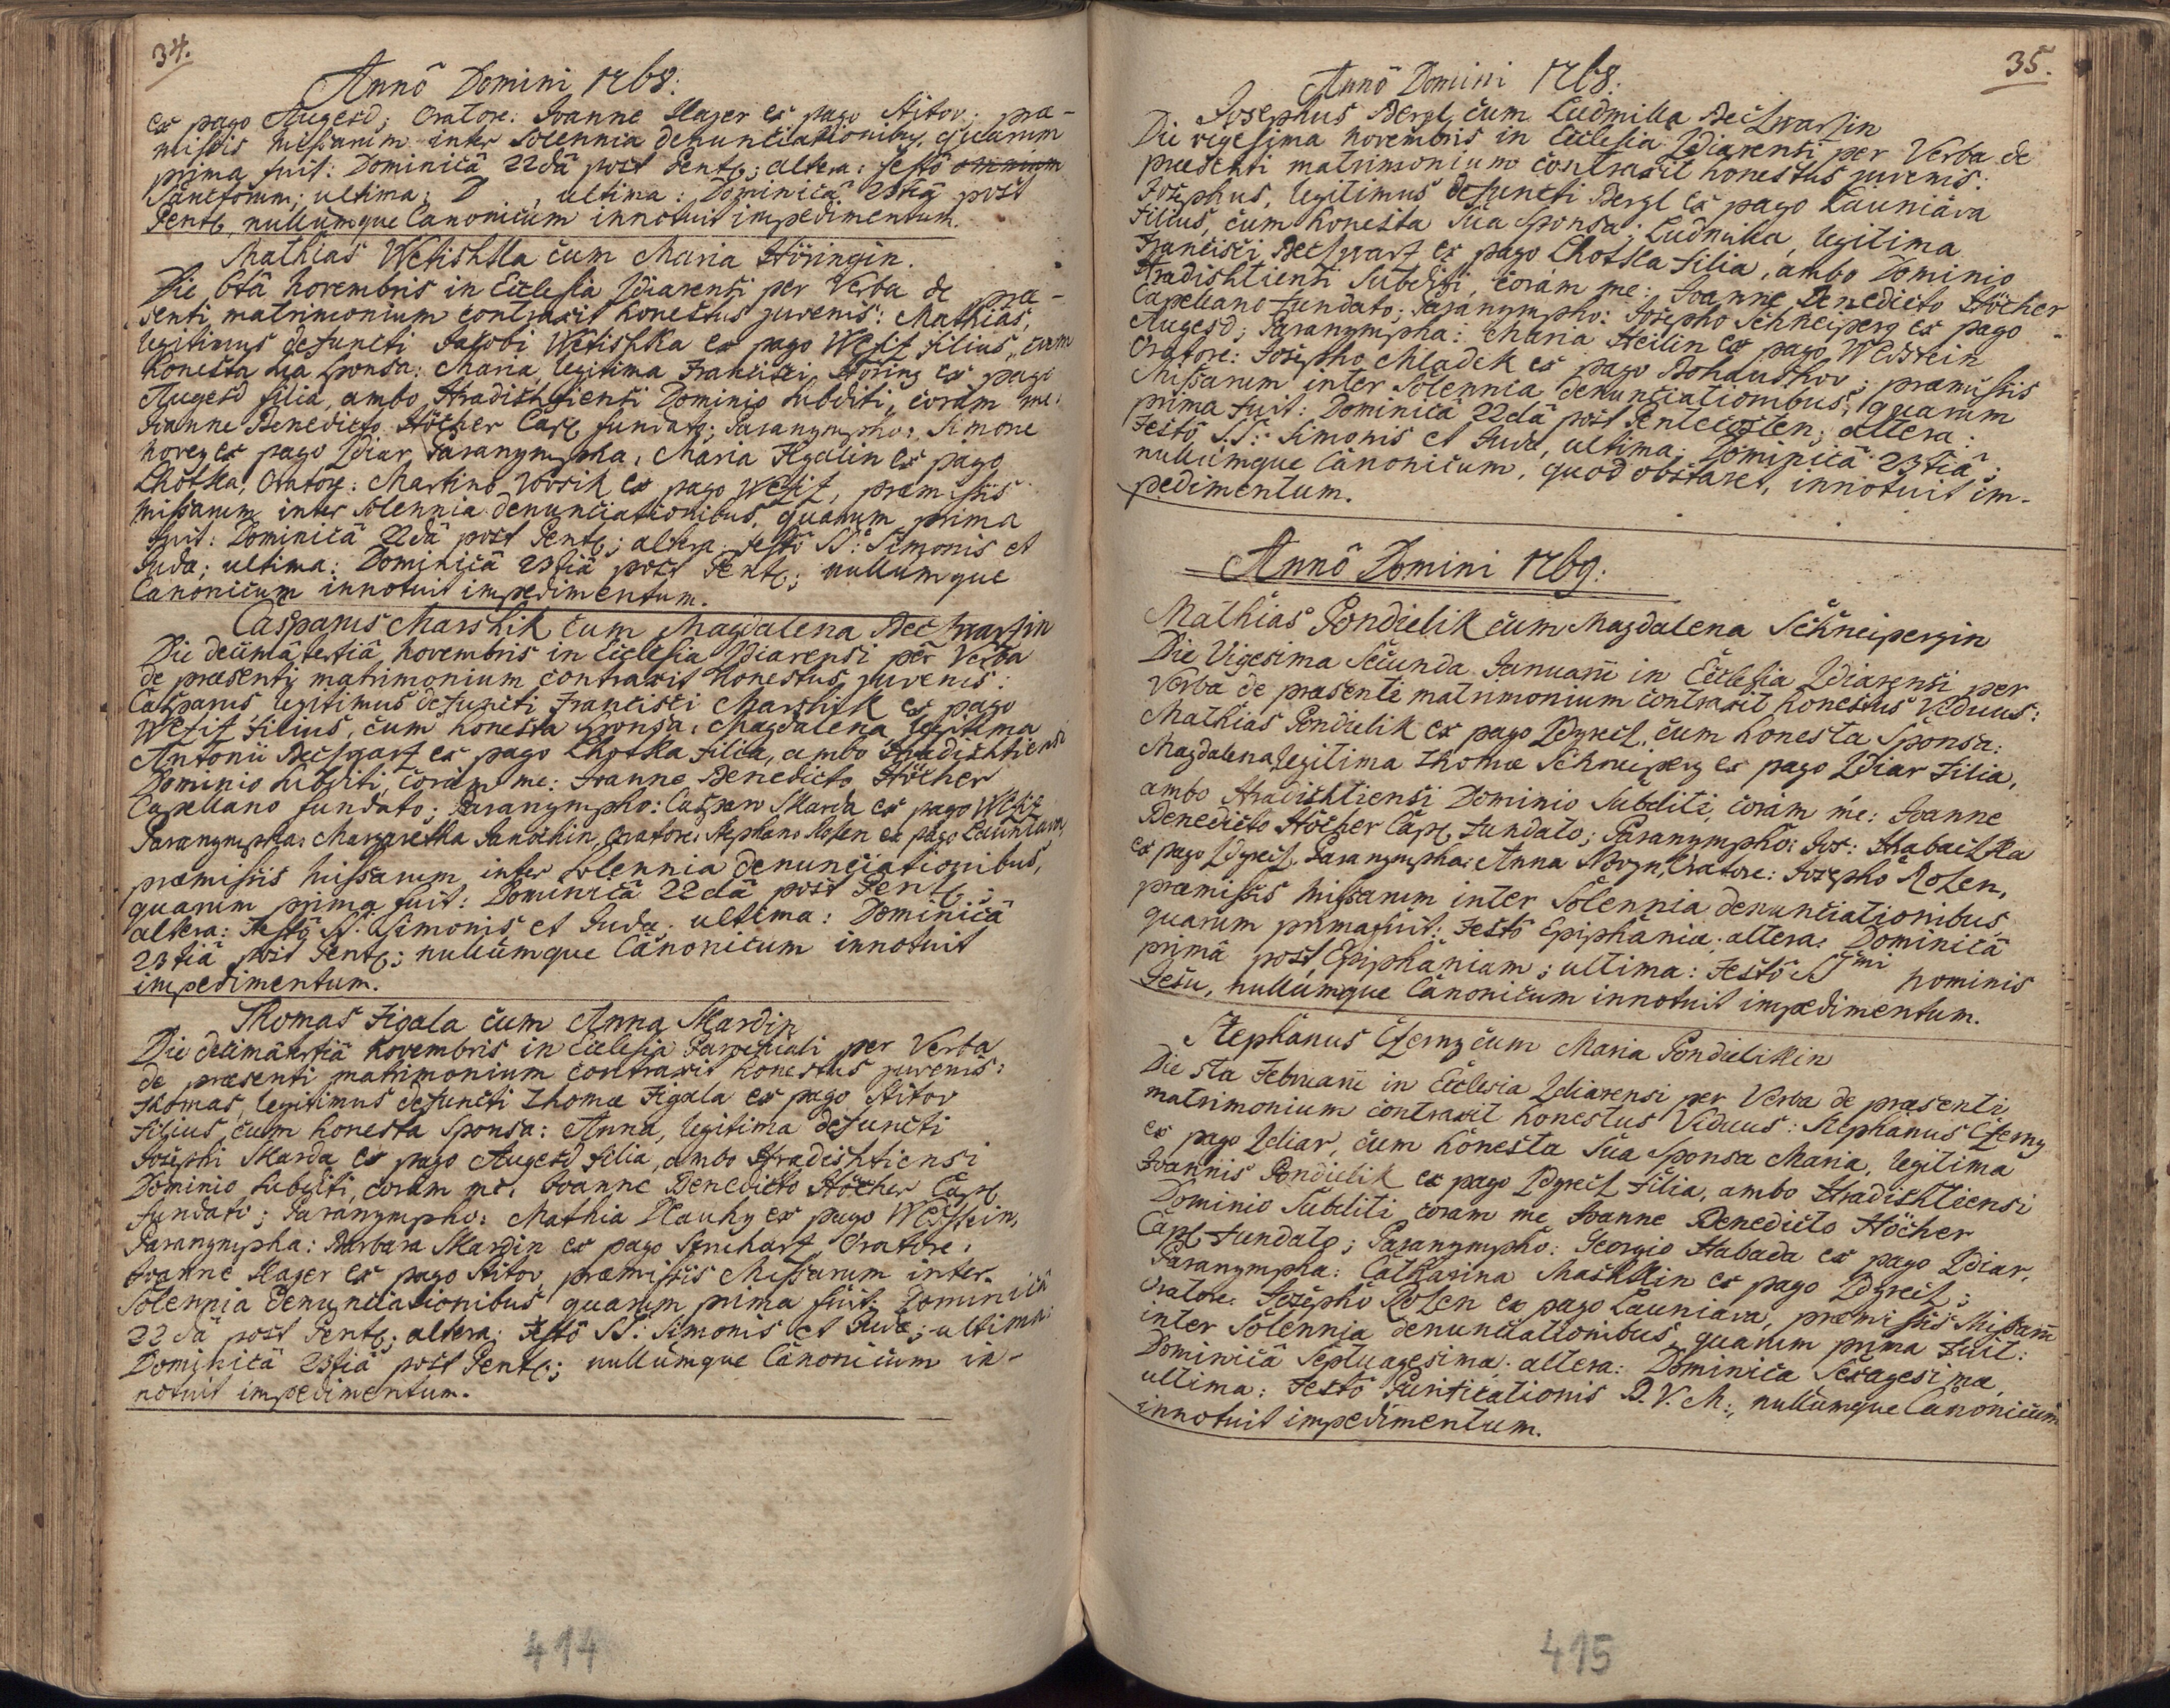 34.
Annô Domini 1768.
ex pago Augesd; Oratore: Joanne Hager ex pago Stitov; prae-
missis missarum inter Solennia denunciationibus, quarum
prima fuit: Dominicâ 22dâ post Pent; altera: festô omnium
Sanctorum; ultima; D , ultima: Dominicâ 23tiâ post
Pent, nullumque Canonicum innotuit impedimentum.
Mathias Wetishka cum Maria Höringin.
Die 6tâ Novembris in Ecclesia Zdiarensi per Verba de prae-
senti matrimonium contraxit honestus juvenis: Mathias,
legitimus defuncti Jacobi Wetishka ex pago Wesiz filius, cum
honesta sua sponsa: Maria legitima Francisci Höring ex pago
Augesd filia, ambo Hradishtiensi Dominio subditi, coram me:
Joanne Benedicto Höcher Cap fundat; Paranympho: Simone
Norey ex pago Zdiar, Paranympha: Maria Figalin ex pago
Lhotka, Oratore: Martino Worsik ex pago Wesiz, praemissis
missarum inter Solennia denunciationibus, quarum prima
fuit: Dominicâ 22dâ post Pent; altera: festô SS: Simonis et
Juda; ultima: Dominicâ 23tiâ post Pent; nullumque
Canonicum innotuit impedimentum.
Casparus Marshik cum Magdalena Betzwarzin
Die decimâtertiâ Novembris in Ecclesia Zdiarensi per Verba
de praesenti matrimonium contraxit honestus juvenis:
Casparus legitimus defuncti Francisci Marshik ex pago
Wesiz filius, cum honesta sponsa: Magdalena legitima
Antonii Betzwarz ex pago Lhotka filia, ambo Hradishtiensi
Dominio subditi, coram me: Joanne Benedicto Höcher
Capellano fundato; Paranympho: Casparo Skarda ex pago Wesiz
Paranympha: Margaretha, Oratore: Stephano Rosen ex pago Launiava,
praemissis missarum inter Solennia denunciationibus,
quarum prima fuit: Dominicâ 22dâ post Pent;
altera: Festô SS: Simonis et Juda; ultima: Dominicâ
23tiâ post Pent; nullumque Canonicum innotuit
impedimentum.
Thomas Figala cum Anna Skardin
Die decimâtertiâ Novembris in Ecclesia Parochiali per Verba
de praesenti matrimonium contraxit honestus juvenis:
Thomas, legitimus defuncti Thomae Figala ex pago Stitov
filius, cum honesta Sponsa: Anna, legitima defuncti
Josephi Skarda ex pago Augesd filia, ambo Hradishtiensi
Dominio subditi, coram me: Joanne Benedicto Höcher Cap
fundato; Paranympho: Mathia Hauhy ex pago Wesstein,
Paranympha: Barbara Skardin ex pago, Oratore:
Joanne Hager ex pago Stitov, praemissis Missarum inter
Solennia denunciationibus quarum prima fuit, Dominicâ
22dâ post Pent; altera: Festô SS: Simonis et Juda; ultima:
Dominicâ 23tiâ post Pent; nullumque Canonicum in-
notuit impedimentum.
414
35.
Annô Domini 1768.
Josephus Bergl cum Ludmilla Betzwarzin
Die vigesima novembris in Ecclesia Zdiarensi per Verba de
praesenti matrimonium contraxit honestus juvenis:
Josephus, legitimus defuncti Bergl ex pago Launiava
filius, cum honesta sua sponsa: Ludmilla, legitima
Francisci Betzwarz ex pago Lhotka filia, ambo Dominio
Hradishtiensi Subditi, coram me: Joanne Benedicto Höcher
Capellano fundato; Paranympho: Josepho Schneiperg ex pago
Augesd; Paranympha: Maria Heilin ex pago Wesstein
Oratore: Josepho Mladek ex pago Bohauskov; praemissis
Missarum inter Solennia denunciationibus, quarum
prima fuit: Dominicâ 22dâ post Pentecosten; altera:
Festô, S.S: Simonis et Judae, ultima: Dominicâ 23tiâ;
nullumque Canonicum, quod obstaret, innotuit im-
pedimentum.
Annô Domini 1769.
Mathias Pondielik cum Magdalena Schneipergin
Die Vigesima Secunda Januarii in Ecclesia Zdiarensi per
Verba de praesente matrimonium contraxit honestus Viduus:
Mathias Pondielik ex pago Zdyretz, cum honesta Sponsa:
Magdalena legitima Thomae Schneiperg ex pago Zdiar Filia,
ambo Hradishtiensi Dominio Subditi, coram me: Joanne
Benedicto Höcher Cap, fundato; Paranympho: Jos: Hrabaczka
ex pago Zdyretz, Paranympha: Anna, Oratore: Josepho Rosen,
praemissis missarum inter Solennia denunciationibus
quarum prima fuit: Festô Epiphaniae; altera: Dominicâ
primâ post Epiphaniam; ultima: Festô SSmi nominis
Jesu, nullumque Canonicum innotuit impedimentum.
Stephanus Czerny cum Maria Pondielikin
Die 5ta Februarii in Ecclesia Zdiarensi per Verba de praesenti
matrimonium contraxit honestus Viduus: Stephanus Czerny
ex pago Zdiar, cum honesta Sua Sponsa Maria, legitima
Joannis Pondielik ex pago Zdyretz Filia, ambo Hradishtiensi
Dominio Subditi, coram me Joanne Benedicto Höcher
Cap, fundato; Paranympho: Georgio Habada ex pago Zdiar,
Paranympha: Catharina Mashkin ex pago Zdyretz;
Oratore: Josepho Rosen ex pago Launiava, praemissis Missarum
inter Solennia denunciationibus, quarum prima fuit:
Dominicâ Septuagesima; altera: Dominica Sexagesimae,
ultima: Festô Purificationis B. V. M:, nullumque Canonicum
innotuit impedimentum.
415